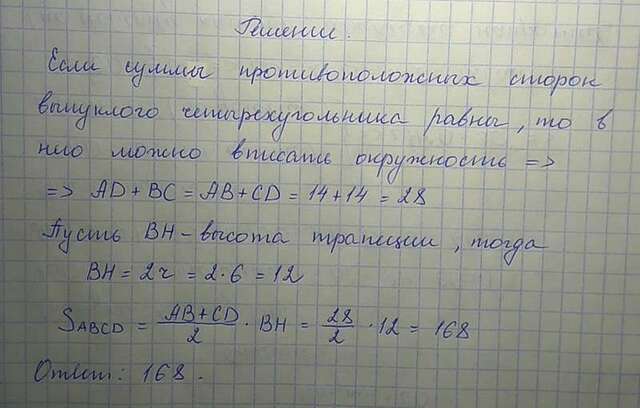 Решение.
Если суммы противоположных сторон
выпуклого четырехугольника равны, то в
него можно вписать окружность =>
=> AD + BC = AB + CD = 14 + 14 = 28
Пусть BH - высота трапеции, тогда
BH = 2r = 2·6 = 12
S_ABCD = (AB+CD)/2 · BH = 28/2 · 12 = 168
Ответ: 168.